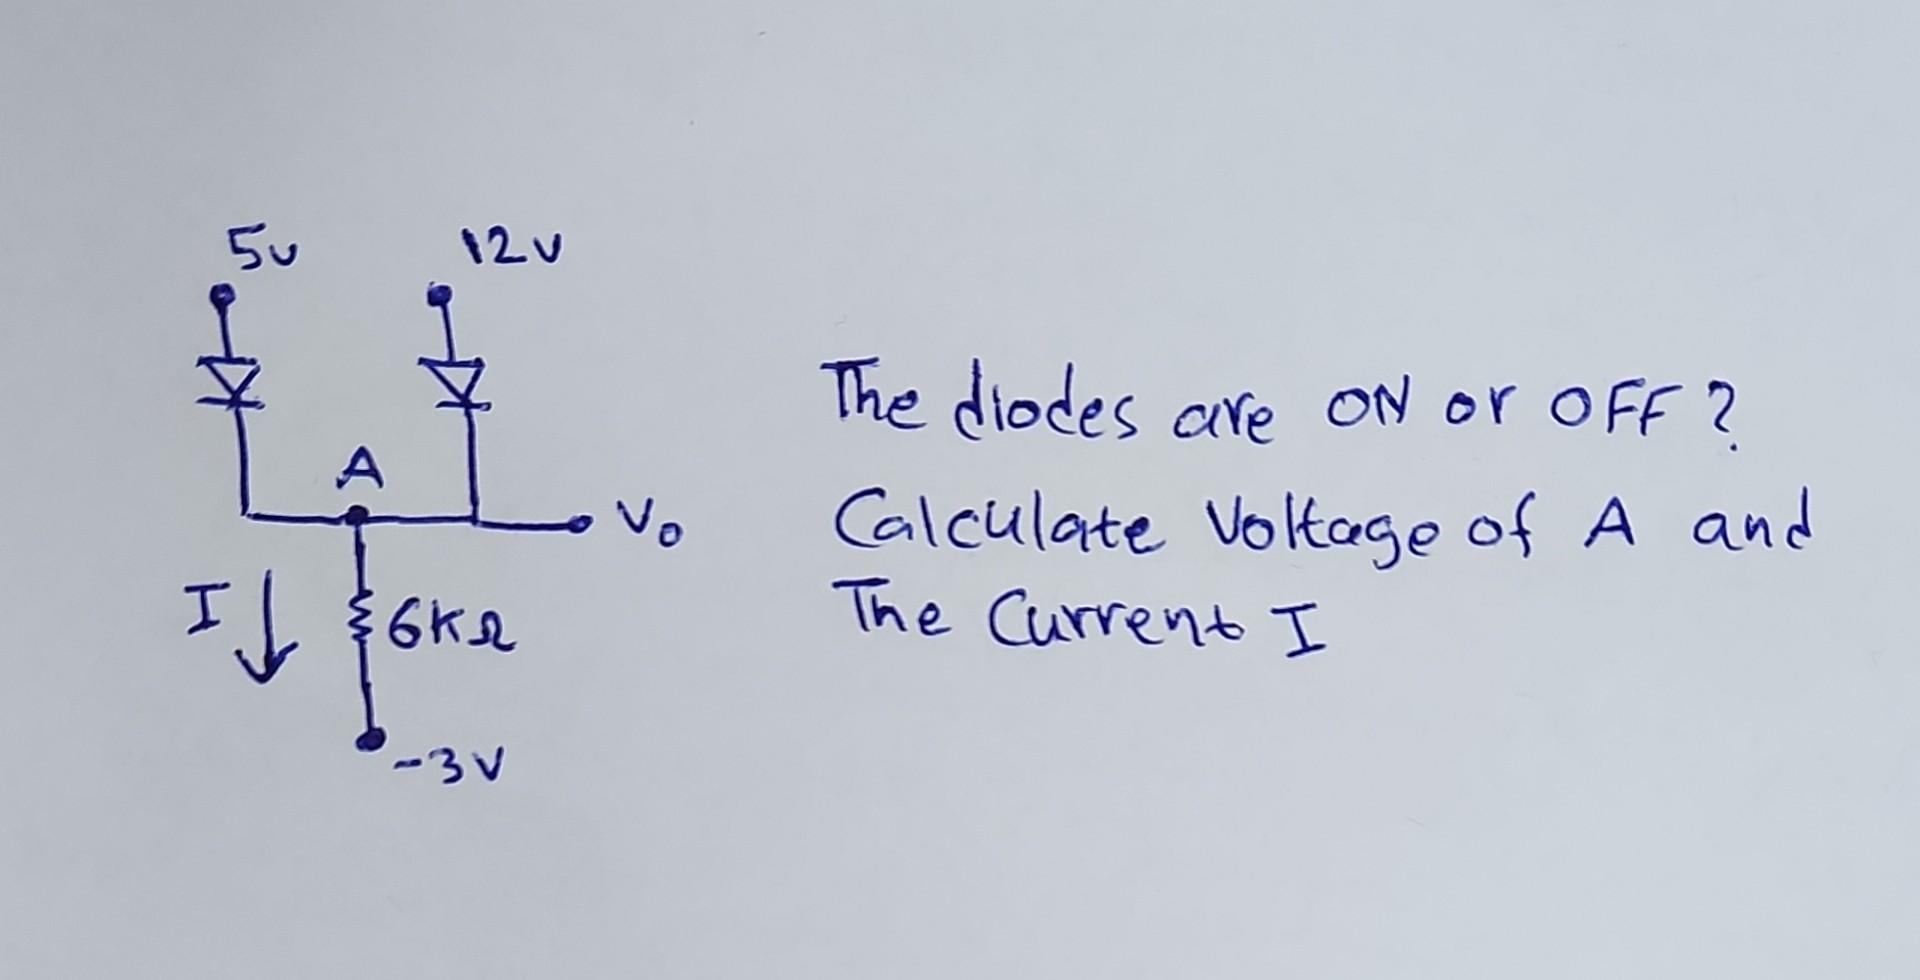 5v 12v
A
Vo
I 6KΩ
-3V
The diodes are ON or OFF?
Calculate Voltage of A and
The Current I